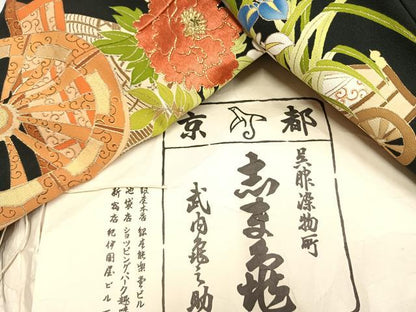 京都
呉服染物
志ま亀
武内亀之助
銀座本店 銀座能楽堂ビル
池袋店 ショッピング・パーク趣味
新宿店 紀伊國屋ビル